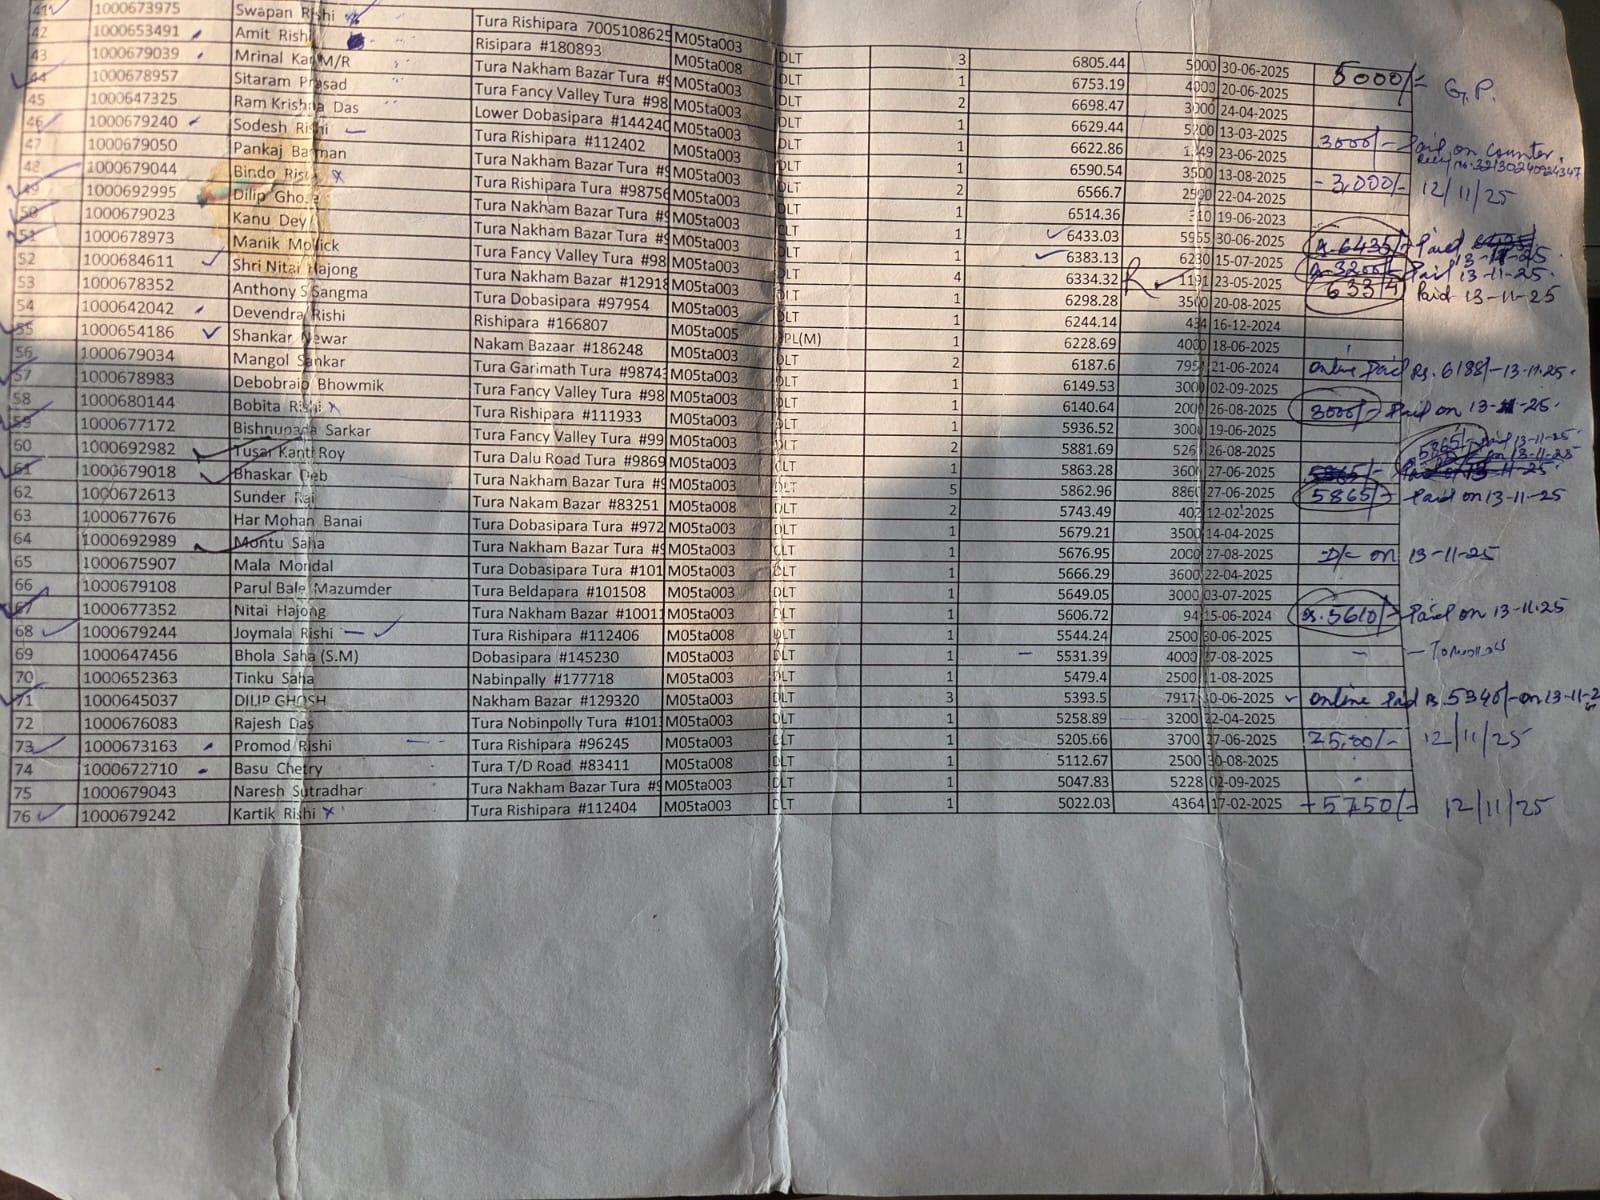 41 1000673975 Swapan Rishi Tura Rishipara 7005108625 M05ta003 DLT 3 6805.44 5000 30-06-2025 5000/= G.P.
42 1000653491 Amit Rishi Risipara #180893 M05ta008 DLT 1 6753.19 4000 20-06-2025
43 1000679039 Mrinal Kar M/R Tura Nakham Bazar Tura #9 M05ta003 DLT 2 6698.47 3000 24-04-2025
44 1000678957 Sitaram Prasad Tura Fancy Valley Tura #98 M05ta003 DLT 1 6629.44 5200 13-03-2025
45 1000647325 Ram Krishna Das Lower Dobasipara #144240 M05ta003 DLT 1 6622.86 23-06-2025
46 1000679240 Sodesh Rishi Tura Rishipara #112402 M05ta003 DLT 1 6590.54 3500 13-08-2025 3000/- Paid on Counter.
47 1000679050 Pankaj Barman Tura Nakham Bazar Tura #9 M05ta003 DLT 2 6566.7 2500 22-04-2025
48 1000679044 Bindo Rishi Tura Rishipara Tura #98756 M05ta003 DLT 1 6514.36 19-06-2023 - 3,000/- 12/11/25
49 1000692995 Dilip Ghose Tura Nakham Bazar Tura #9 M05ta003 DLT 1 6433.03 5955 30-06-2025 Rs. 6435/- Paid 13-11-25
50 1000679023 Kanu Dey Tura Nakham Bazar Tura #9 M05ta003 DLT 1 6383.13 6230 15-07-2025 3200/- Paid 13-11-25.
51 1000678973 Manik Mollick Tura Fancy Valley Tura #98 M05ta003 DLT 4 6334.32 1191 23-05-2025 6334 Paid 13-11-25
52 1000684611 Shri Nitai Hajong Tura Nakham Bazar #12918 M05ta003 DLT 1 6298.28 3500 20-08-2025
53 1000678352 Anthony S Sangma Tura Dobasipara #97954 M05ta003 DLT 1 6244.14 434 16-12-2024
54 1000642042 Devendra Rishi Rishipara #166807 M05ta005 PL(M) 1 6228.69 4000 18-06-2025
55 1000654186 Shankar Newar Nakam Bazaar #186248 M05ta003 DLT 2 6187.6 21-06-2024 Online Paid Rs. 6188/- 13-11-25.
56 1000679034 Mangol Sankar Tura Garimath Tura #9874 M05ta003 DLT 1 6149.53 3000 02-09-2025
57 1000678983 Debobrajo Bhowmik Tura Fancy Valley Tura #98 M05ta003 DLT 1 6140.64 2000 26-08-2025 3000/- Paid on 13-11-25.
58 1000680144 Bobita Rishi Tura Rishipara #111933 M05ta003 DLT 1 5936.52 3000 19-06-2025
59 1000677172 Bishnupada Sarkar Tura Fancy Valley Tura #99 M05ta003 DLT 2 5881.69 26-08-2025 5865/- Paid 13-11-25
60 1000692982 Tusar Kanti Roy Tura Dalu Road Tura #9869 M05ta003 DLT 1 5863.28 3600 27-06-2025 5865/-
61 1000679018 Bhaskar Deb Tura Nakham Bazar Tura #9 M05ta003 DLT 5 5862.96 8860 27-06-2025 5865/- Paid on 13-11-25
62 1000672613 Sunder Rai Tura Nakam Bazar #83251 M05ta008 DLT 2 5743.49 402 12-02-2025
63 1000677676 Har Mohan Banai Tura Dobasipara Tura #972 M05ta003 DLT 1 5679.21 3500 14-04-2025
64 1000692989 Montu Saha Tura Nakham Bazar Tura #9 M05ta003 DLT 1 5676.95 2000 27-08-2025 D/c on 13-11-25
65 1000675907 Mala Mondal Tura Dobasipara Tura #101 M05ta003 DLT 1 5666.29 3600 22-04-2025
66 1000679108 Parul Bale Mazumder Tura Beldapara #101508 M05ta003 DLT 1 5649.05 3000 03-07-2025
67 1000677352 Nitai Hajong Tura Nakham Bazar #10011 M05ta003 DLT 1 5606.72 94 15-06-2024 Rs. 5610/- Paid on 13-11-25
68 1000679244 Joymala Rishi Tura Rishipara #112406 M05ta008 DLT 1 5544.24 2500 30-06-2025
69 1000647456 Bhola Saha (S.M) Dobasipara #145230 M05ta003 DLT 1 5531.39 4000 27-08-2025 -
70 1000652363 Tinku Saha Nabinpally #177718 M05ta003 DLT 1 5479.4 2500 11-08-2025
71 1000645037 DILIP GHOSH Nakham Bazar #129320 M05ta003 DLT 3 5393.5 7917 30-06-2025 Online Paid Rs. 5340/- on 13-11-2
72 1000676083 Rajesh Das Tura Nobinpolly Tura #101 M05ta003 DLT 1 5258.89 3200 22-04-2025
73 1000673163 Promod Rishi Tura Rishipara #96245 M05ta003 DLT 1 5205.66 3700 27-06-2025 75,00/- 12/11/25
74 1000672710 Basu Chetry Tura T/D Road #83411 M05ta008 DLT 1 5112.67 2500 30-08-2025
75 1000679043 Naresh Sutradhar Tura Nakham Bazar Tura #9 M05ta003 DLT 1 5047.83 5228 02-09-2025
76 1000679242 Kartik Rishi Tura Rishipara #112404 M05ta003 DLT 1 5022.03 4364 17-02-2025 - 5750/- 12/11/25